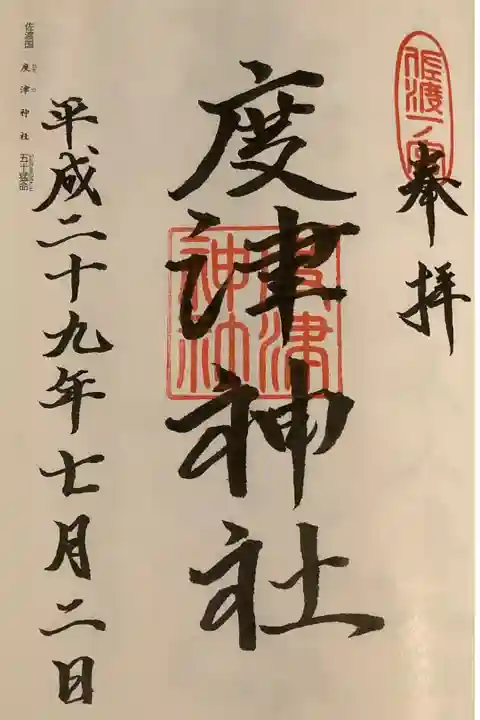 佐渡一ノ宮
奉拝
度津神社
度津神社
平成二十九年七月二日
佐渡国 度津神社 五十猛命